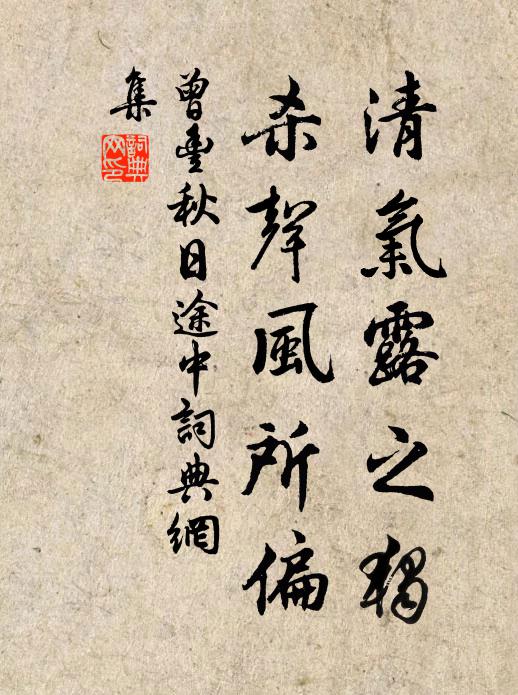 清氣露之獨
杀聲風所偏
曾豐秋日途中詞典網
集
詞典
网印